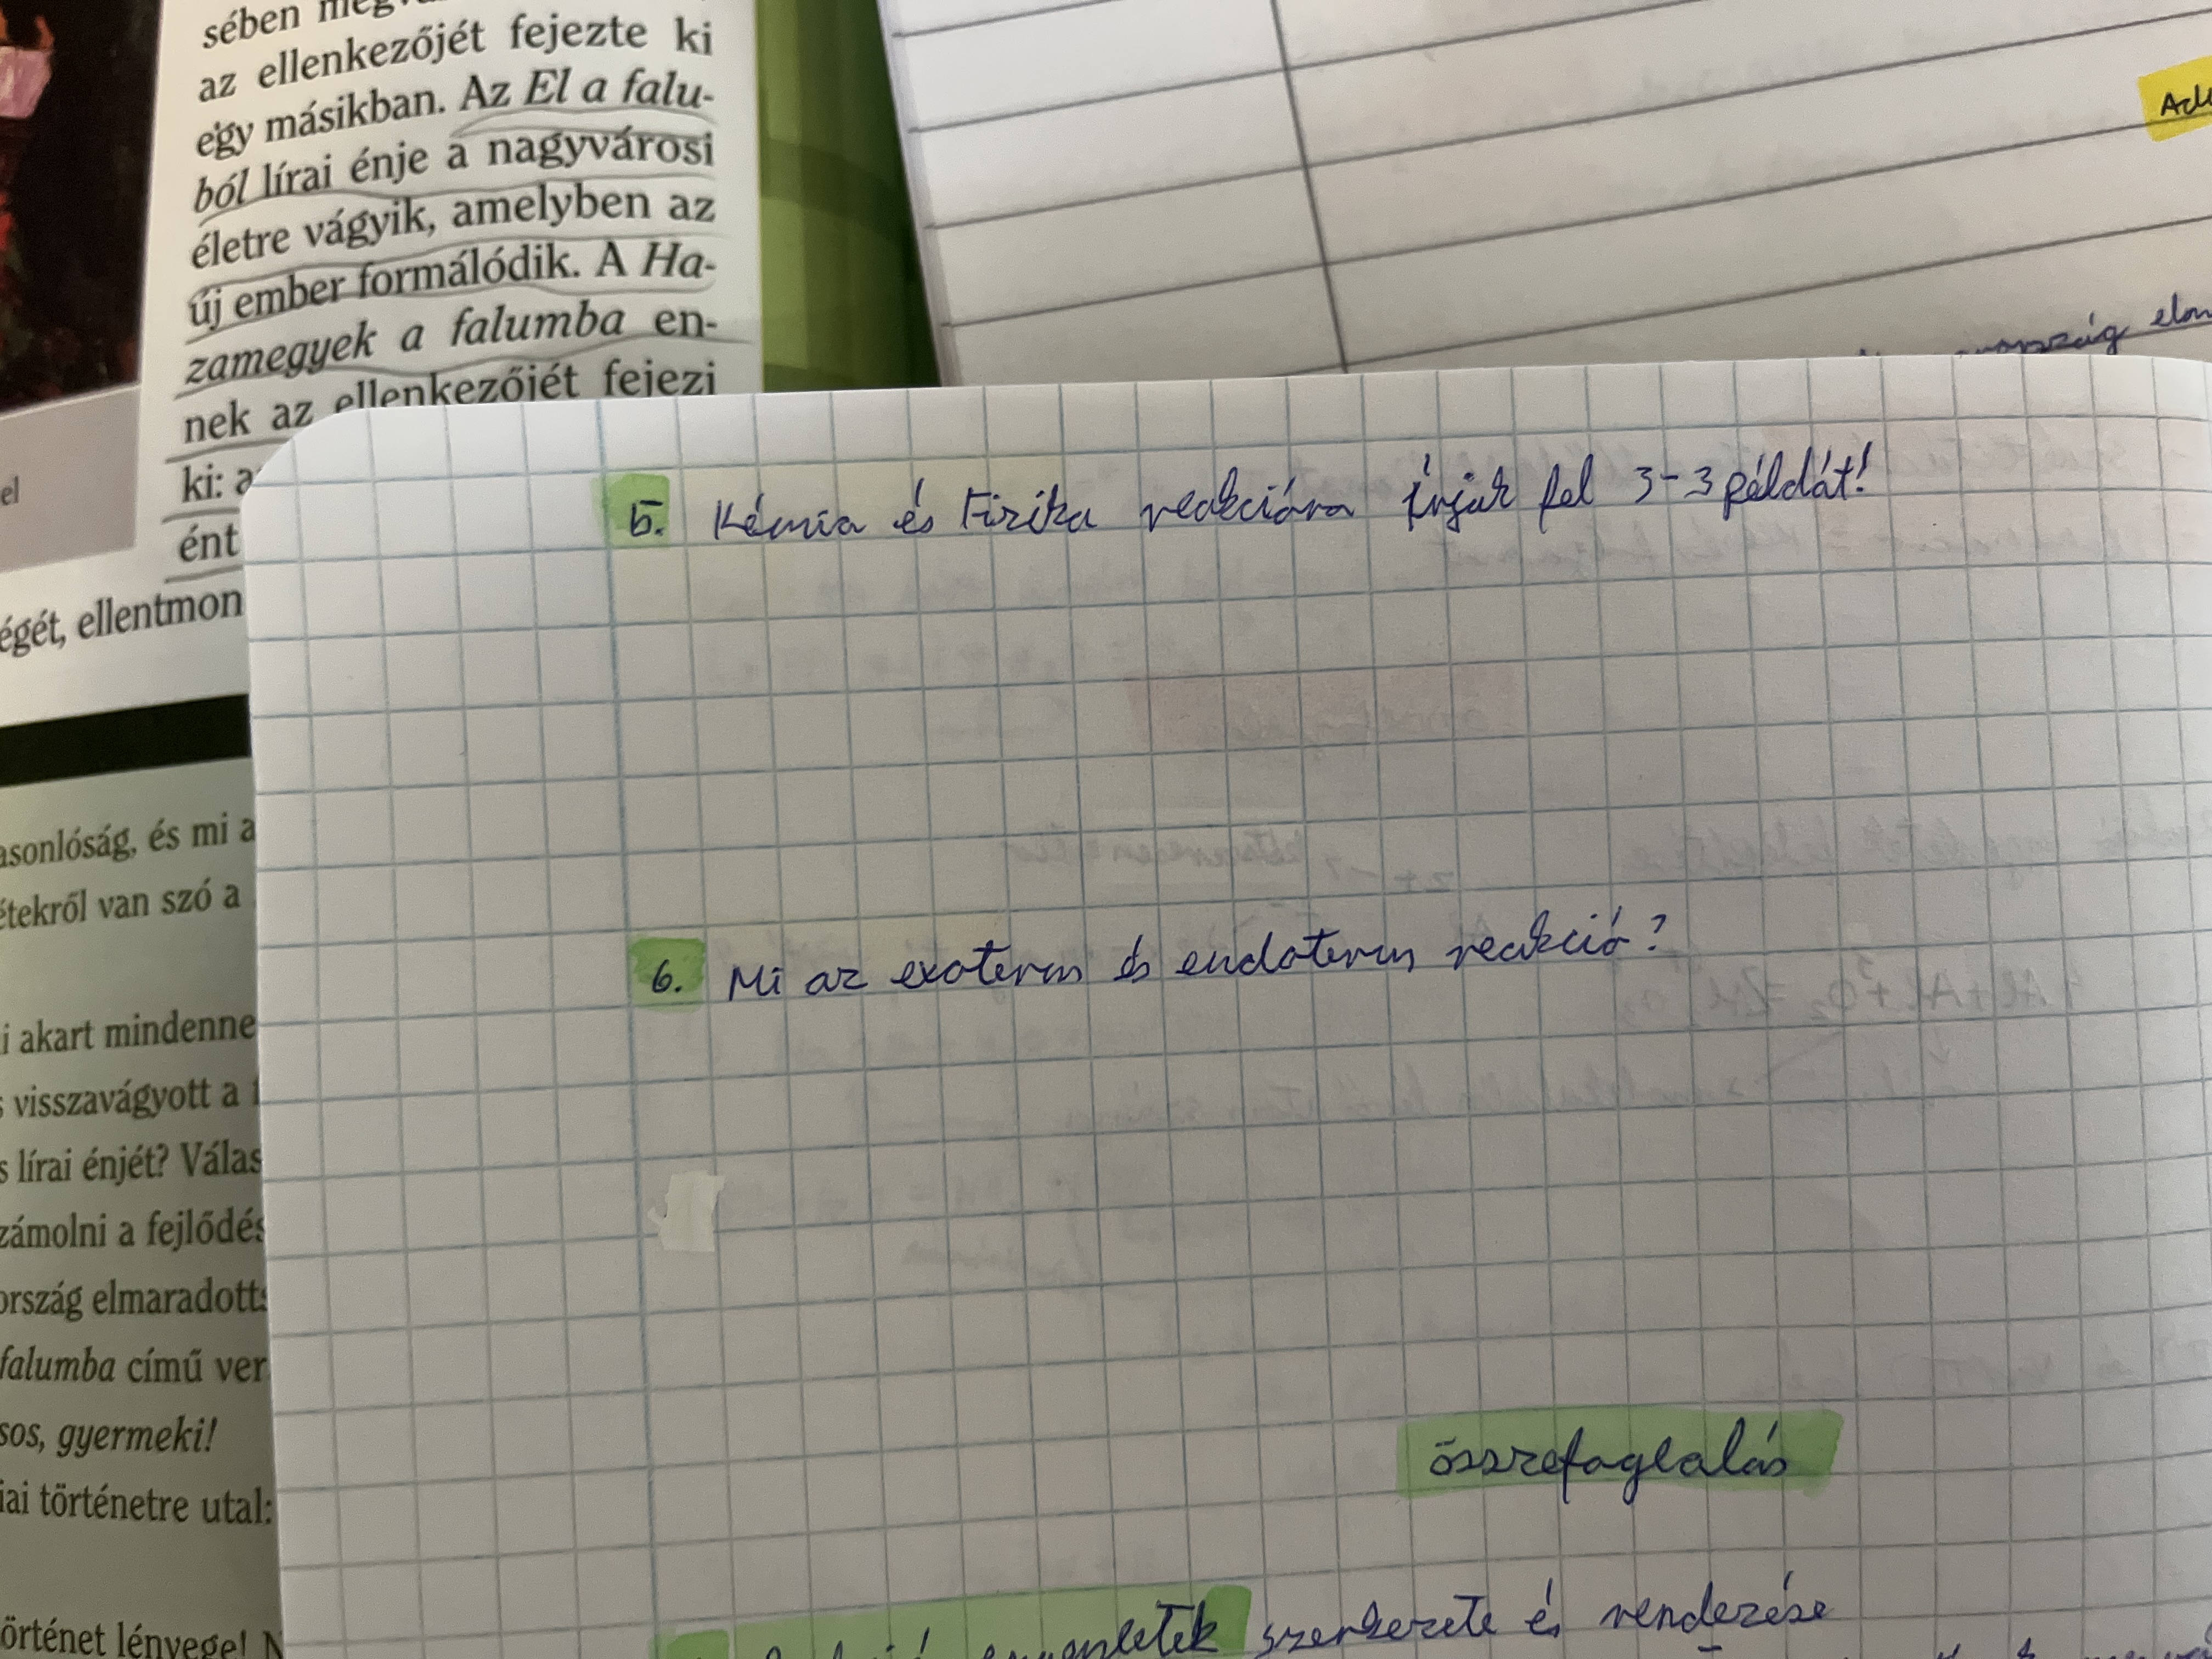 sében
az ellenkezőjét fejezte ki
egy másikban. Az El a falu-
ból lírai énje a nagyvárosi
életre vágyik, amelyben az
új ember formálódik. A Ha-
zamegyek a falumba en-
nek az ellenkezőjét fejezi
ki: a
ént
el
égét, ellentmon
asonlóság, és mi a
étekről van szó a
i akart mindenne
s visszavágyott a
s lírai énjét? Válas
zámolni a fejlődés
ország elmaradotts
falumba című ver
sos, gyermeki!
iai történetre utal:
örténet lényege! N
5. Kémia és Fizika reakcióra írjuk fel 3-3 példát!
6. Mi az exoterm és endoterm reakció?
összefoglalás
szerkezete és rendezése